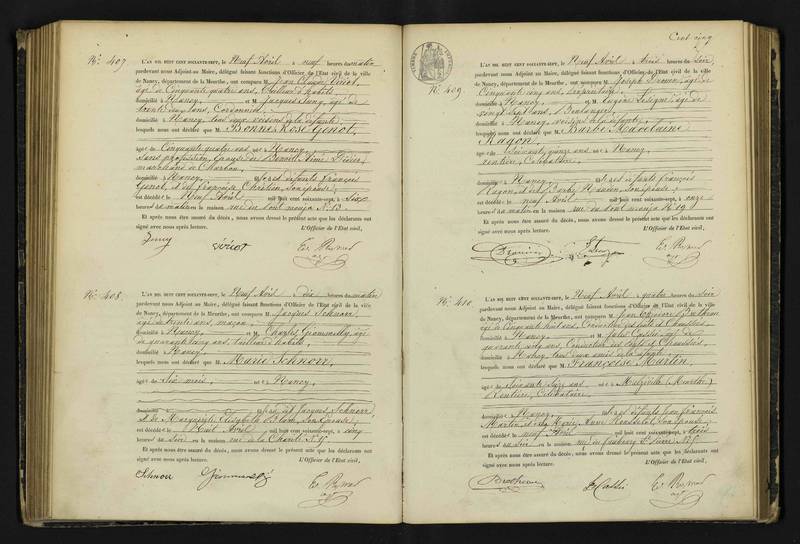 N.º 407
L'AN MIL HUIT CENT SOIXANTE-SEPT, le Neuf Avril à neuf heures du matin
pardevant nous Adjoint au Maire, délégué faisant fonctions d'Officier de l'Etat civil de la ville
de Nancy, département de la Meurthe, ont comparu M. Jean Claude
âgé de Cinquante quatre ans, Tailleur d'habits
domicilié à Nancy, et M. Jacques âgé de
trente ans, Cordonnier,
domicilié à Nancy, tous deux voisins de la défunte,
lesquels nous ont déclaré que M. Bonne Rose Genot,
âgée de Cinquante quatre ans né à Nancy,
Sans profession, Epouse de Didier,
marchand de Charbon,
domiciliée à Nancy, fille des défunts François
Genot, et de Françoise Chrétien, son épouse;
est décédée le Neuf Avril mil huit cent soixante-sept, à six
heures du matin en la maison rue du Pont mouja N.º 13.
Et après nous être assuré du décès, nous avons dressé le présent acte que les déclarants ont
signé avec nous après lecture. L'Officier de l'Etat civil,
N.º 408.
L'AN MIL HUIT CENT SOIXANTE-SEPT, le Neuf Avril à dix heures du matin
pardevant nous Adjoint au Maire, délégué faisant fonctions d'Officier de l'Etat civil de la ville
de Nancy, département de la Meurthe, ont comparu M. Jacques Schnorr,
âgé de trente ans, maçon,
domicilié à Nancy, et M. Charles âgé
de quarante cinq ans, tailleur d'habits,
domicilié à Nancy,
lesquels nous ont déclaré que M. Marie Schnorr,
âgée de Six mois, née à Nancy,
domiciliée fille de Jacques Schnorr,
et de Marguerite Elisabeth Blach, son épouse;
est décédée le Huit Avril mil huit cent soixante-sept, à cinq
heures du soir en la maison rue de la Charité N.º
Et après nous être assuré du décès, nous avons dressé le présent acte que les déclarants ont
signé avec nous après lecture. L'Officier de l'Etat civil,
Schnorr
Cent cinq
N.º 409
L'AN MIL HUIT CENT SOIXANTE-SEPT, le Neuf Avril à trois heures du soir
pardevant nous Adjoint au Maire, délégué faisant fonctions d'Officier de l'Etat civil de la ville
de Nancy, département de la Meurthe, ont comparu M. Joseph âgé de
Cinquante cinq ans, propriétaire,
domicilié à Nancy, et M. Eugène âgé de
vingt sept ans, Boulanger,
domicilié à Nancy, voisins de la défunte,
lesquels nous ont déclaré que M. Barbe Madelaine
Hagon,
âgée de Soixante quinze ans née à Nancy,
rentière, Célibataire,
domiciliée à Nancy, fille des défunts François
Hagon, et de Barbe son épouse;
est décédée le neuf Avril mil huit cent soixante-sept, à onze
heures du matin en la maison rue du Pont mouja N.º 19
Et après nous être assuré du décès, nous avons dressé le présent acte que les déclarants ont
signé avec nous après lecture. L'Officier de l'Etat civil,
N.º 410.
L'AN MIL HUIT CENT SOIXANTE-SEPT, le Neuf Avril à quatre heures du soir
pardevant nous Adjoint au Maire, délégué faisant fonctions d'Officier de l'Etat civil de la ville
de Nancy, département de la Meurthe, ont comparu M. Jean
âgé de Cinquante huit ans, Conducteur des ponts et Chaussées,
domicilié à Nancy, et M. Jules Cassié, âgé de
quarante cinq ans, Conducteur des ponts et Chaussées,
domicilié à Nancy, tous deux amis de la défunte,
lesquels nous ont déclaré que M. Françoise Martin,
âgée de Soixante seize ans née à Malzéville (Meurthe)
Rentière, Célibataire,
domiciliée à Nancy, fille des défunts Jean François
Martin, et de Marie Anne son épouse;
est décédée le neuf Avril mil huit cent soixante-sept, à trois
heures du soir en la maison rue du faubourg St. Pierre N.º
Et après nous être assuré du décès, nous avons dressé le présent acte que les déclarants ont
signé avec nous après lecture. L'Officier de l'Etat civil,